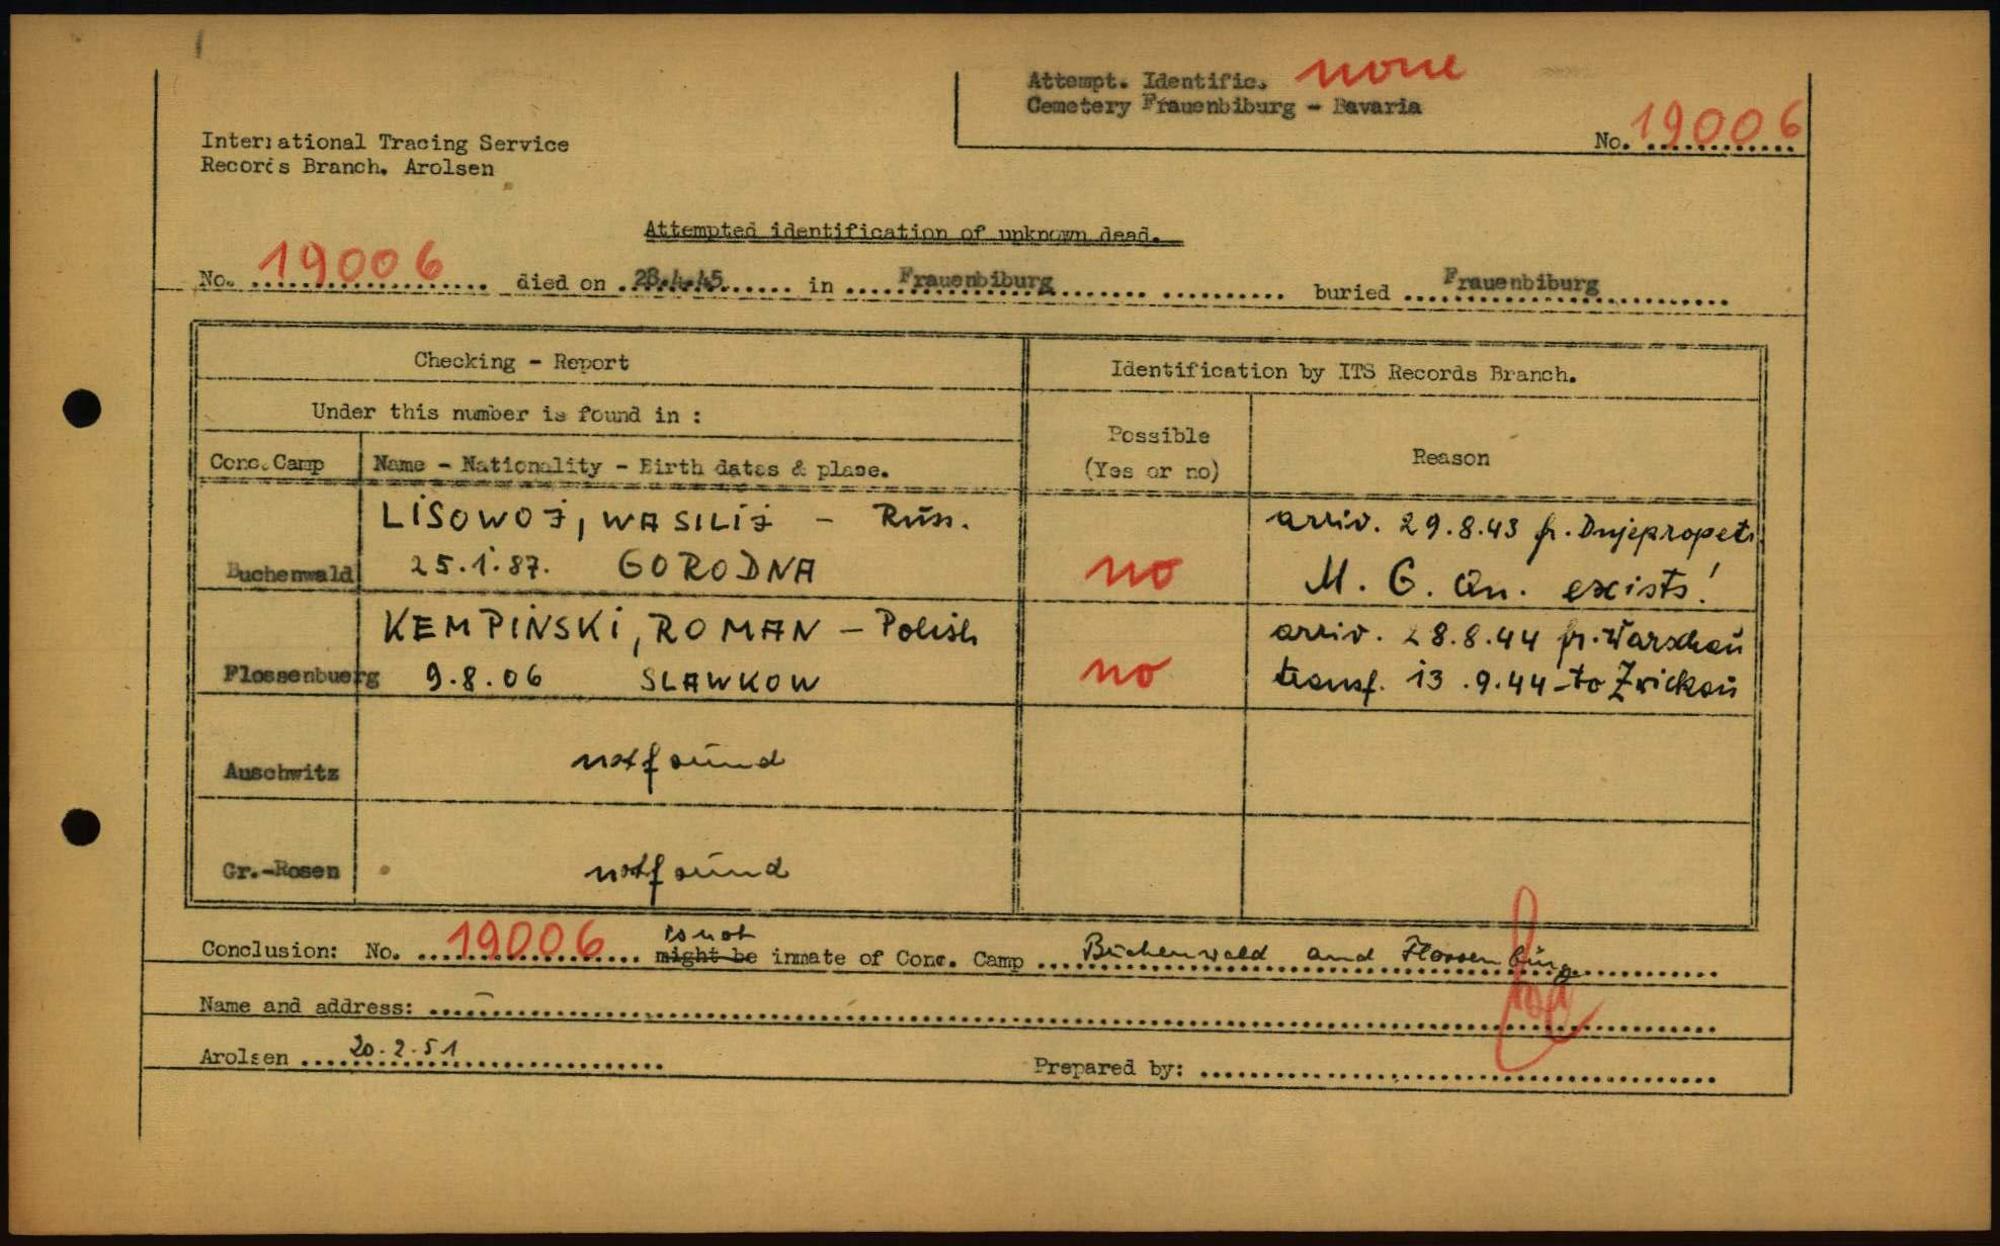 Attempt. Identific. none
Cemetery Frauenbiburg - Bavaria
No. 19006
International Tracing Service
Records Branch. Arolsen
Attempted identification of unknown dead.
No. 19006 died on 28.4.45 in Frauenbiburg buried Frauenbiburg
Checking - Report
Identification by ITS Records Branch.
Under this number is found in :
Conc.Camp
Name - Nationality - Birth dates & place.
Possible
(Yes or no)
Reason
LISOWOJ, WASILIJ - Russ.
arriv. 29.8.43 fr. Dnjepropet.
Buchenwald 25.1.87. GORODNA no M. G. Qu. exists!
KEMPINSKI, ROMAN - Polish
arriv. 28.8.44 fr. Warschau
Flossenbuerg 9.8.06 SLAWKOW no transf. 13.9.44 - to Zwickau
Auschwitz not found
Gr.-Rosen not found
is not
Conclusion: No. 19006 might be inmate of Conc. Camp Buchenwald and Flossenbürg
Name and address: -
Arolsen 20.2.51
Prepared by: